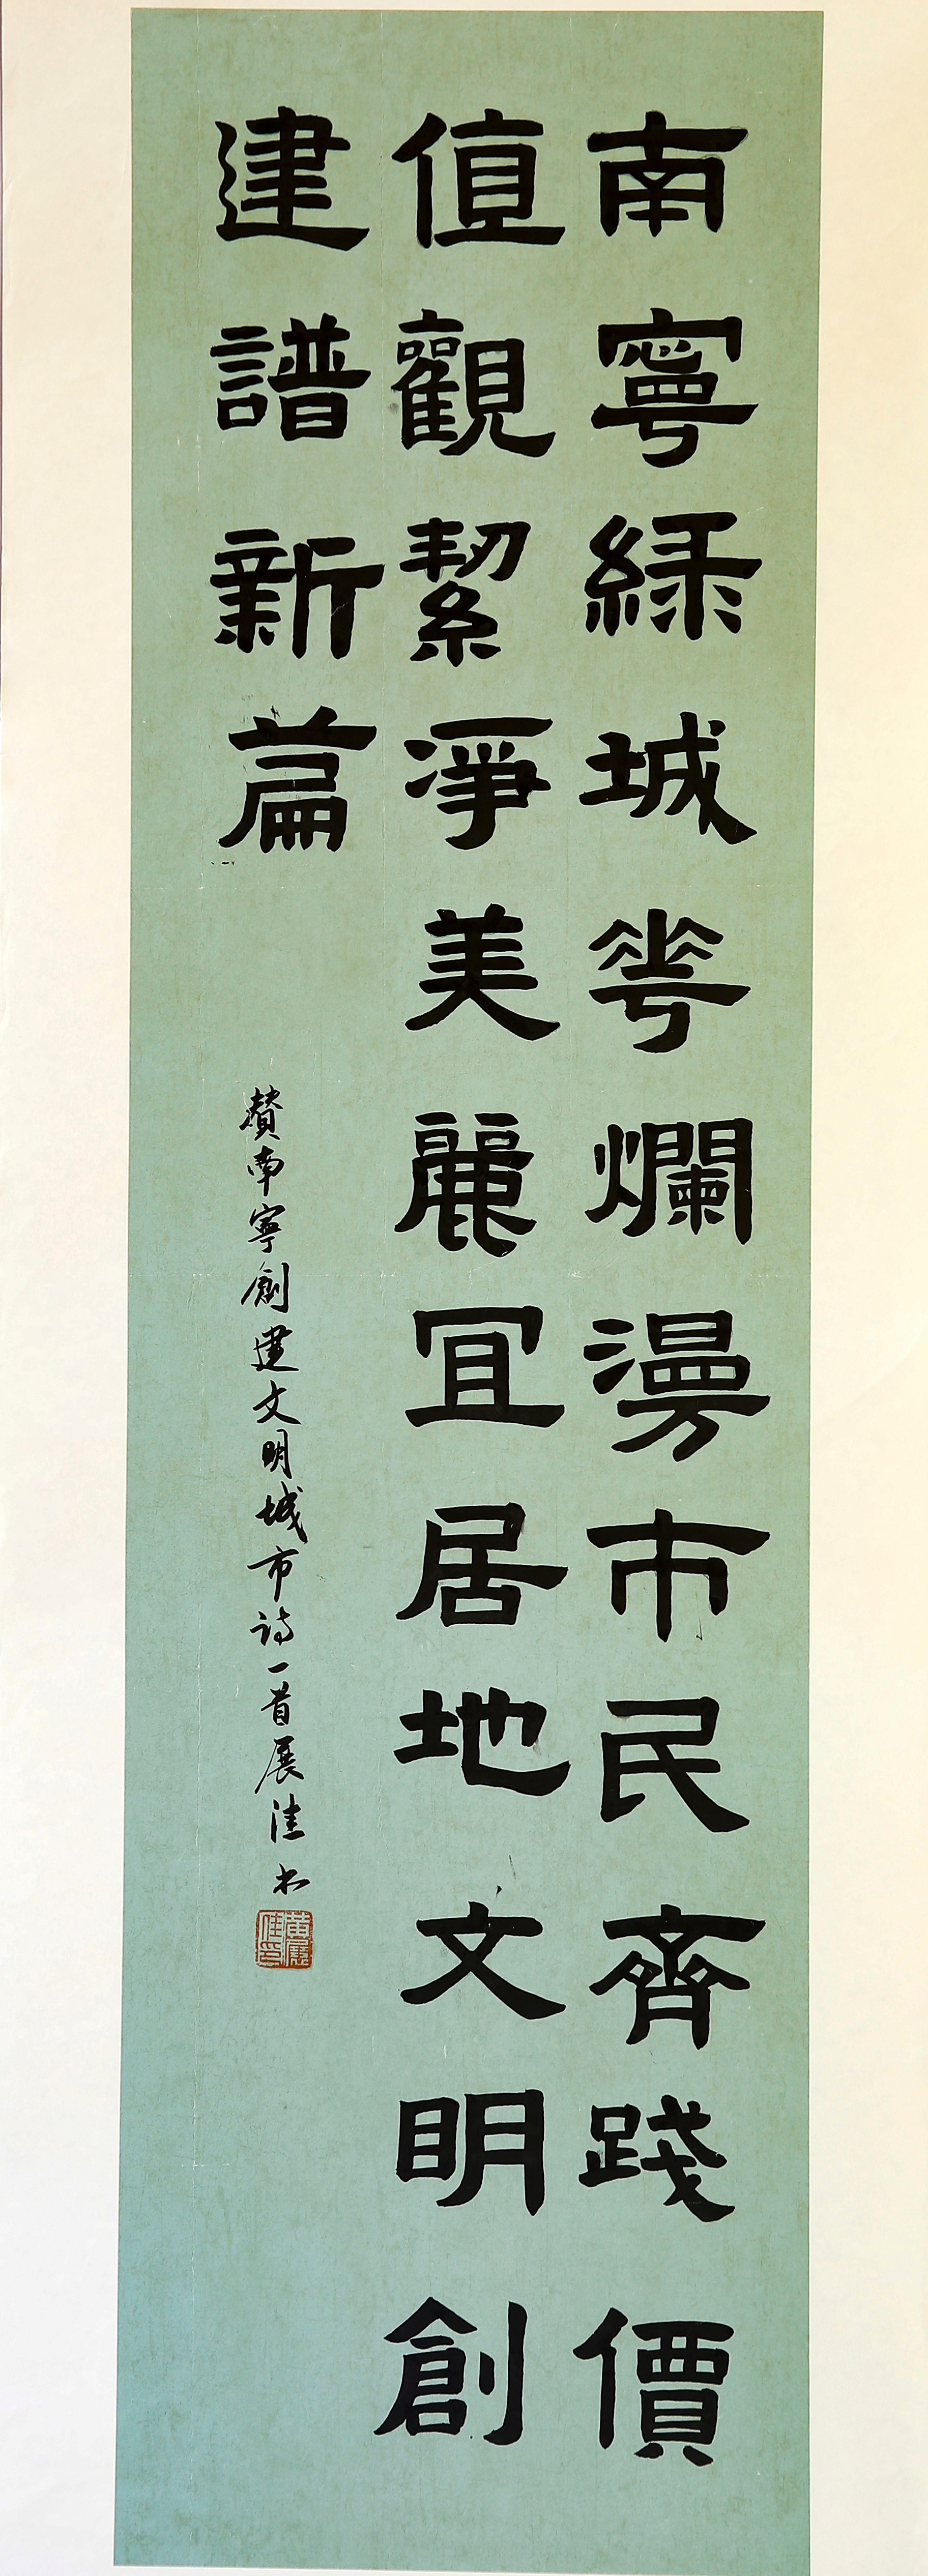 南寧綠城花爛漫市民齊踐價
值觀絜淨美麗宜居地文明創
建譜新篇
贊南寧創建文明城市詩一首展佳書
黃展
佳印